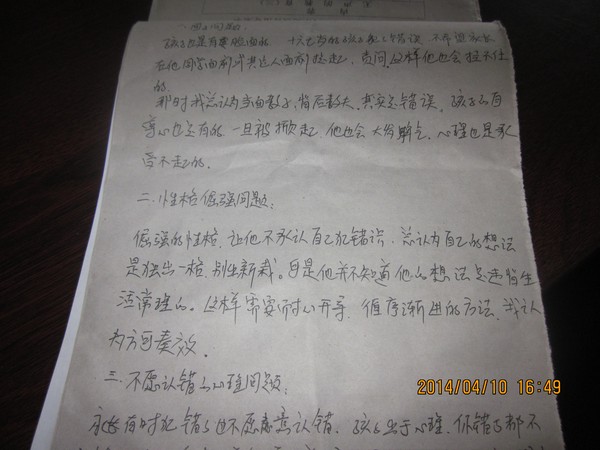 孩子也是有尊严面的. 十六七岁的孩子犯了错误, 不希望家长
在他同学面前或其他人面前提起, 责问. 这样他也会挂不住
的.
那时我总认为当面教子, 背后教夫. 其实是错误, 孩子的自
尊心也是有的. 一旦被掀起, 他也会大发脾气, 心理也是承
受不起的.
二. 性格倔强问题:
倔强的性格, 让他不承认自己犯错误. 总认为自己的想法
是独出一格, 别出新裁. 但是他并不知道他的想法是违背生
活常理的. 这样需要耐心开导, 循序渐进的方法, 我认
为方可奏效.
三. 不愿认错的心理问题:
家长有时犯错了也不愿意认错. 孩子出于心理, 你错了都不
2014/04/10 16:49